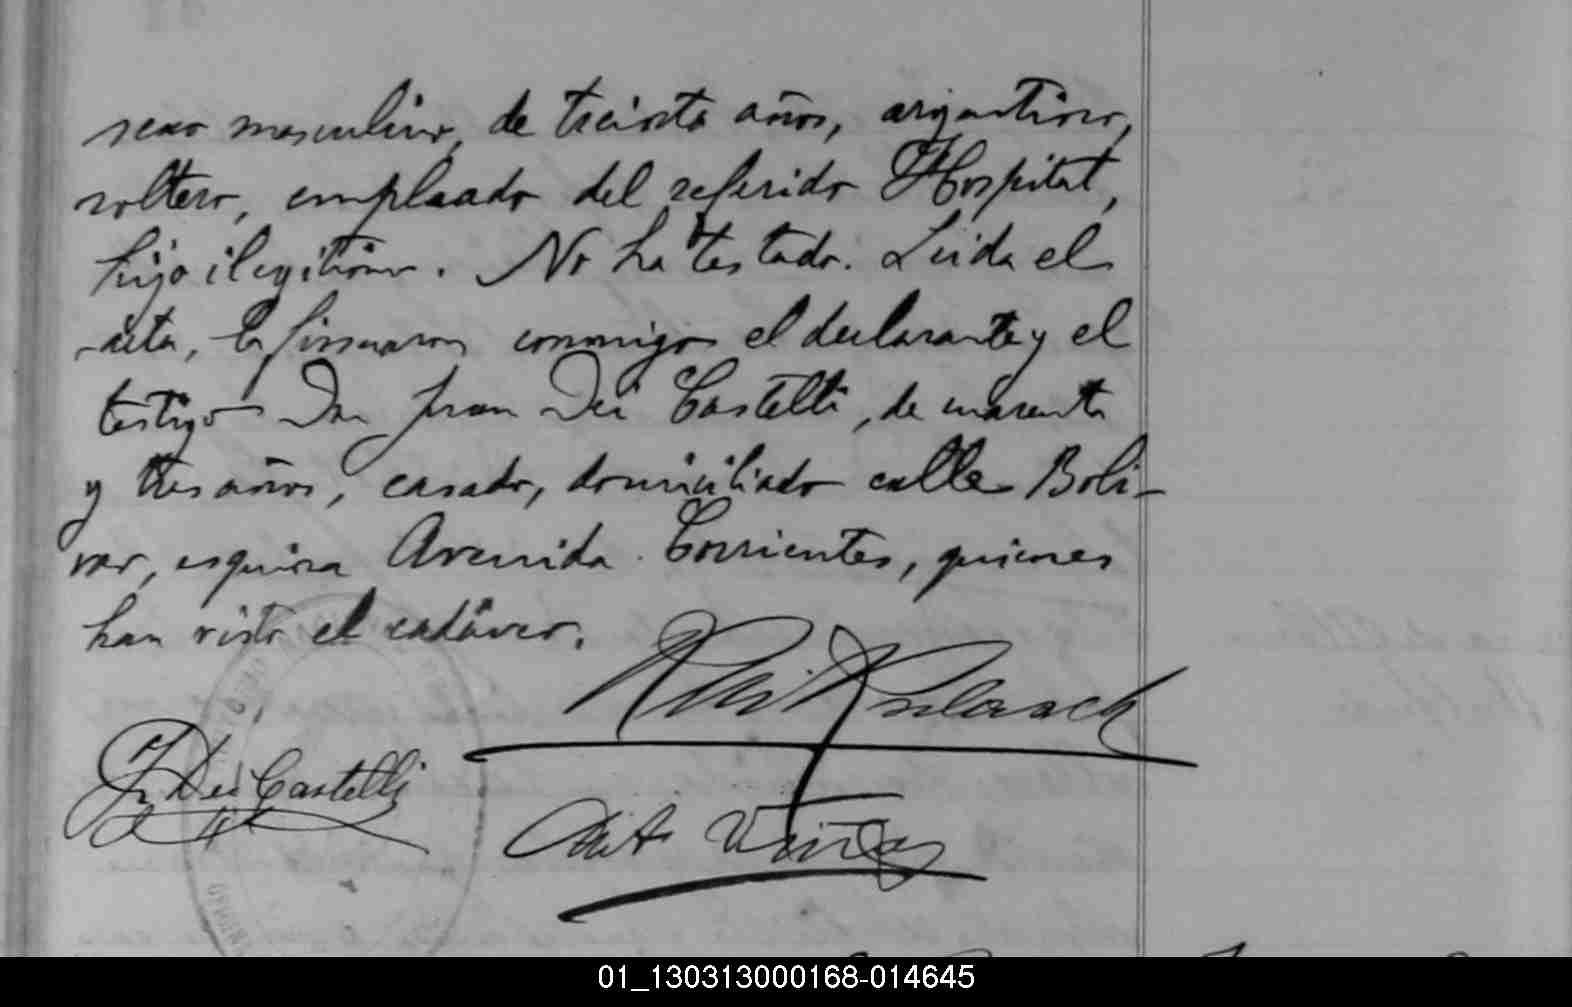 sexo masculino, de treinta años, argentino,
soltero, empleado del referido Hospital,
hijo ilegítimo. No ha testado. Leida el
acta, la firmaron conmigo el declarante y el
testigo Don Juan Dei Castelli, de cuarenta
y tres años, casado, domiciliado calle Boli-
var, esquina Avenida Corrientes, quienes
han visto el cadáver.
Dei Castelli
01_130313000168-014645